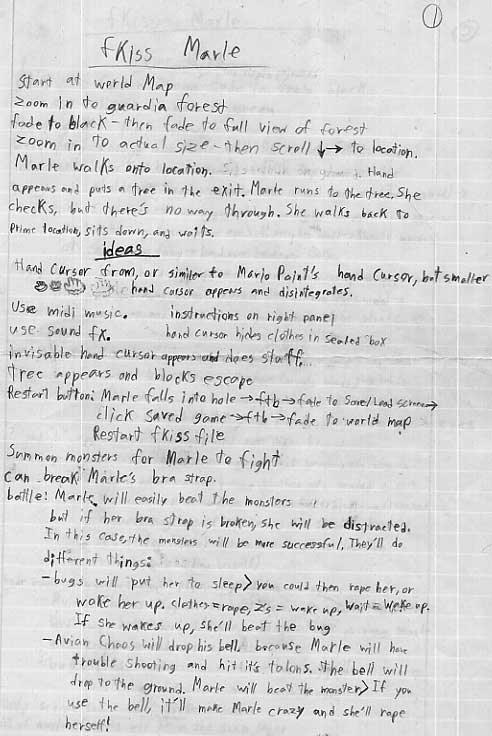 1
fKiss Marle
Start at world Map
Zoom in to guardia forest
fade to black - then fade to full view of forest
Zoom in to actual size - then scroll ↓→ to location.
Marle walks onto location. Hand
appears and puts a tree in the exit. Marle runs to the tree. She
checks, but there's no way through. She walks back to
Prime location, sits down, and waits.
ideas
Hand Cursor from, or similar to Mario Paint's hand Cursor, but smaller
hand cursor appears and disintegrates.
Use midi music. instructions on right panel
use sound fx. hand cursor hides clothes in sealed box
invisable hand cursor appears and does stuff...
tree appears and blocks escape
Restart button: Marle falls into hole → ftb → fade to Save/Load screen →
click saved game → ftb → fade to world map
Restart fkiss file
Summon monsters for Marle to fight
Can break Marle's bra strap.
battle: Marle will easily beat the monsters
but if her bra strap is broken, she will be distracted.
In this case, the monsters will be more successful. They'll do
different things:
- bugs will put her to sleep > you could then rape her, or
wake her up. clothes = rape, Z's = wake up, wait = wake up.
If she wakes up, she'll beat the bug
- Avian Chaos will drop his bell. because Marle will have
trouble shooting and hit it's talons. The bell will
drop to the ground. Marle will beat the monster > If you
use the bell, it'll make Marle crazy and she'll rape
herself!